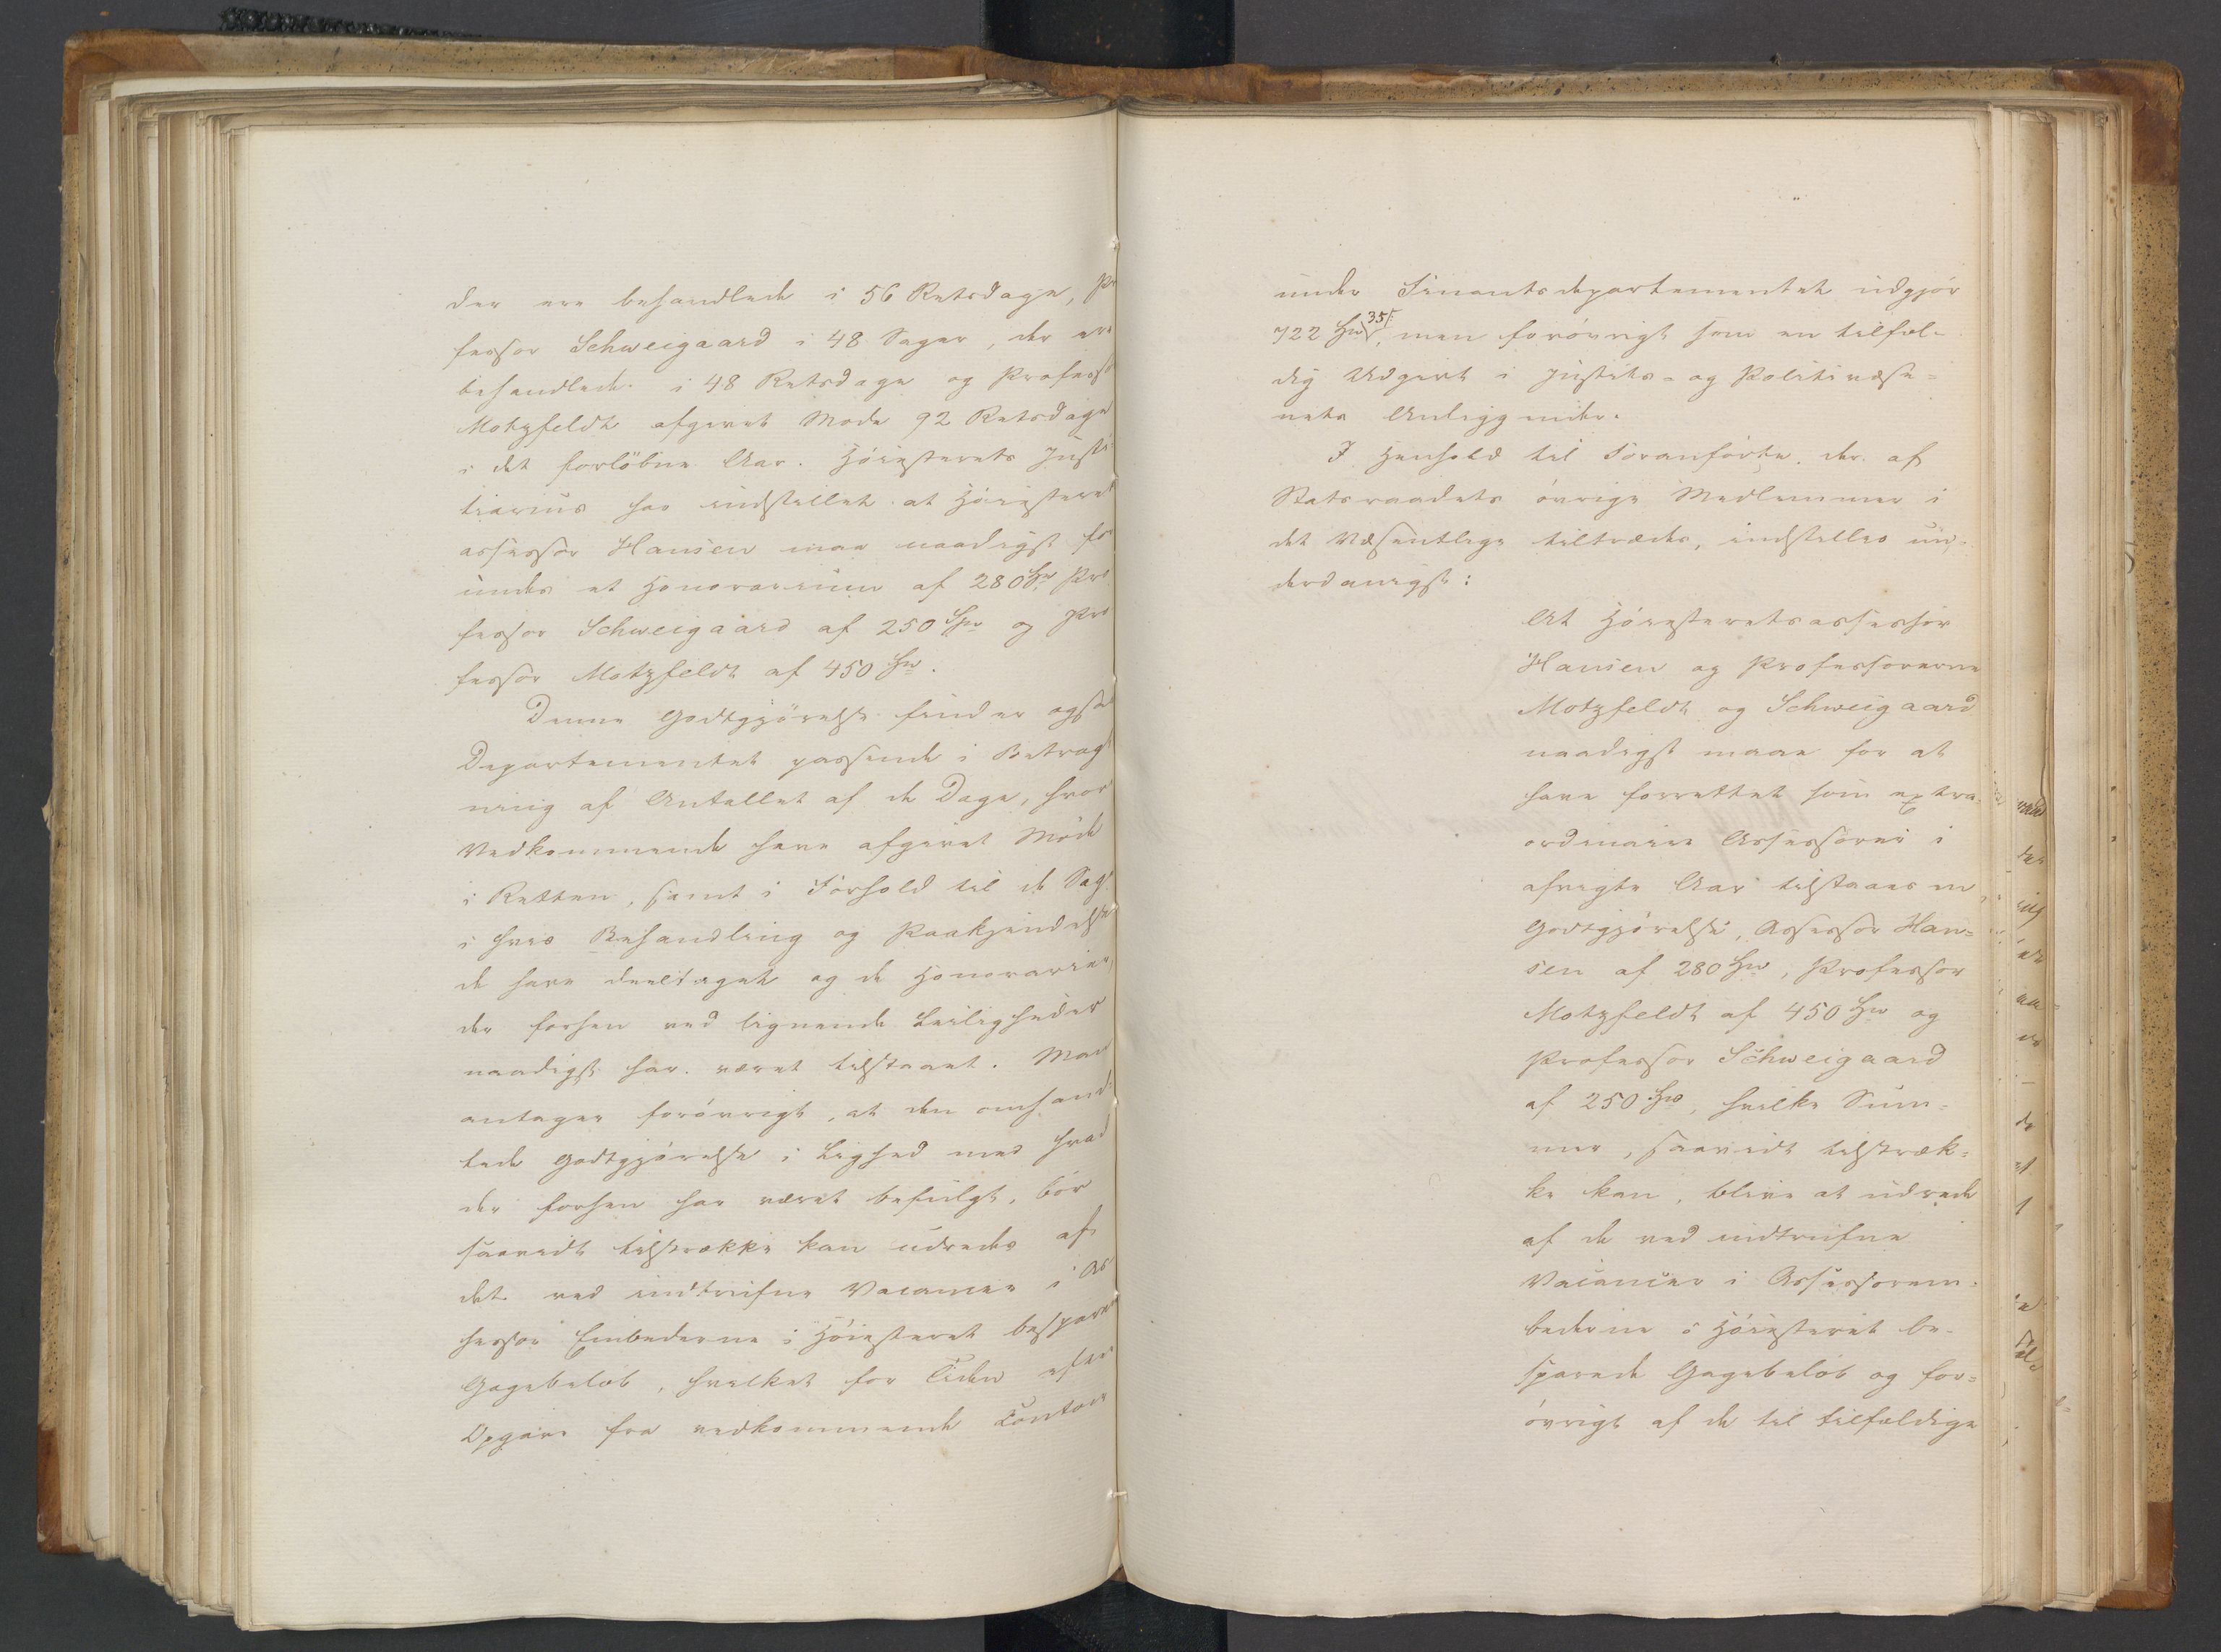 der ere behandlede i 56 Retsdage, Pr
fessor Schweigaard i 48 Sager, der ere
behandlede i 48 Retsdage og Professo
Motzfeldt afgivet Møde 92 Retsdage
i det forløbne Aar. Høiesterets Justi
tiarius har indstillet at Høiesteret
assessor Hansen maa naadigst for
undes et Honorarium af 280 Spd Pro
fessor Schweigaard af 250 Spd og Pro
fessor Motzfeldt af 450 Spd.
Denne Godtgjørelse finder ogsaa
Departementet passende i Betragt
ning af Antallet af de Dage, hvor
Vedkommende have afgivet Møde
i Retten, samt i Forhold til de Sag
i hvis Behandling og Paakjendelse
de have deeltaget og de Honorarier,
der forhen ved lignende Leiligheder
naadigst har været tilstaaet. Man
antager forøvrigt, at den omhand
lede Godtgjørelse i Lighed med hvad
der forhen har været befulgt, bør
saavidt tilstrække kan udredes af
det ved indtrufne Vacancer i As
sessor Embederne i Høiesteret besparede
Gagebeløb, hvilket for Tiden efter
Opgave fra vedkommende Contoir
under Finantsdepartementet udgjør
722 Spd 35 s, men forøvrigt som en tilfæl-
dig Udgivt i Justits- og Politivæse-
nets Anliggender.
I Henhold til Foranførte, der af
Statsraadets øvrige Medlemmer i
det Væsentlige tiltrædes, indstilles un-
derdanigst:
At Høiesteretsassessor
Hansen og Professorerne
Motzfeldt og Schweigaard
naadigst maae for at
have forrettet som extra-
ordinaire Assessorer i
afvigte Aar tilstaaes en
Godtgjørelse, Assessor Han=
sen af 280 Spd, Professor
Motzfeldt af 450 Spd og
Professor Schweigaard
af 250 Spd, hvilke Sum-
mer, saavidt tilstræk=
ke kan, blive at udrede
af de ved indtrufne
Vacancer i Assessorem-
bederne i Høiesteret be-
sparede Gagebeløb og for=
øvrigt af de til tilfældige